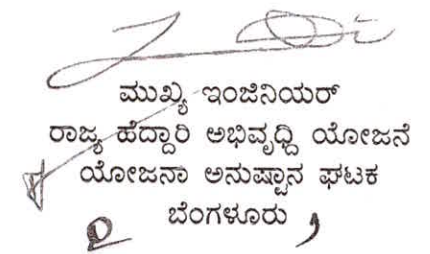 ಮುಖ್ಯ ಇಂಜಿನಿಯರ್
ರಾಜ್ಯ ಹೆದ್ದಾರಿ ಅಭಿವೃದ್ಧಿ ಯೋಜನೆ
ಯೋಜನಾ ಅನುಷ್ಟಾನ ಘಟಕ
ಬೆಂಗಳೂರು